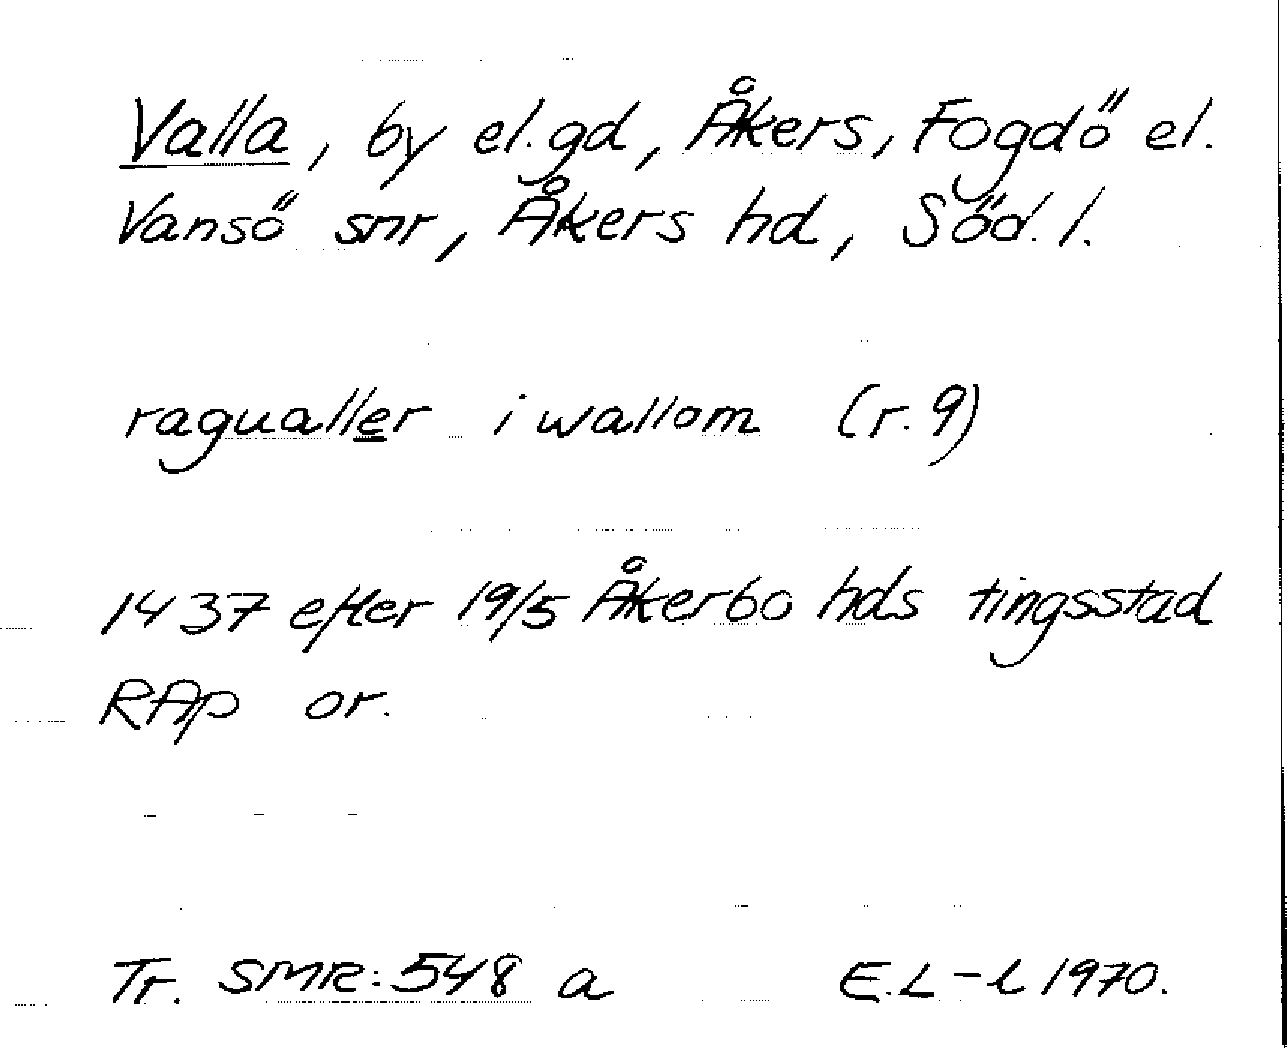 Valla, by el. gd, Åkers, Fogdö el.
Vansö snr, Åkers hd, Söd. l.
ragualler i wallom (r. 9)
1437 efter 19/5 Åkerbo hds tingsstad
RAp or.
Tr. SMR: 548 a E.L-l 1970.